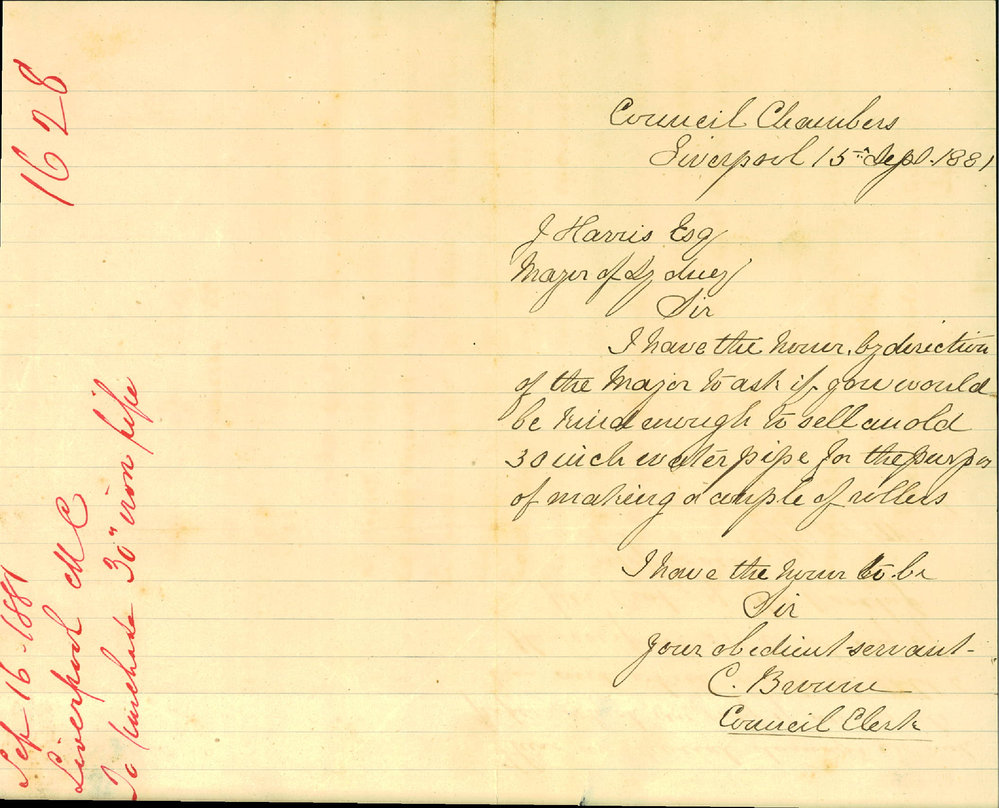 1628
Sep 16-1881
Liverpool M C
To purchase 30" iron pipe
Council Chambers
Liverpool 15th Sept. 1881
J Harris Esq
Mayor of Sydney
Sir
I have the honor, by direction
of the Mayor to ask if you would
be kind enough to sell an old
30 inch water pipe for the purpos
of making a couple of rollers
I have the honor to be
Sir
Your obedient servant
C. Browne
Council Clerk